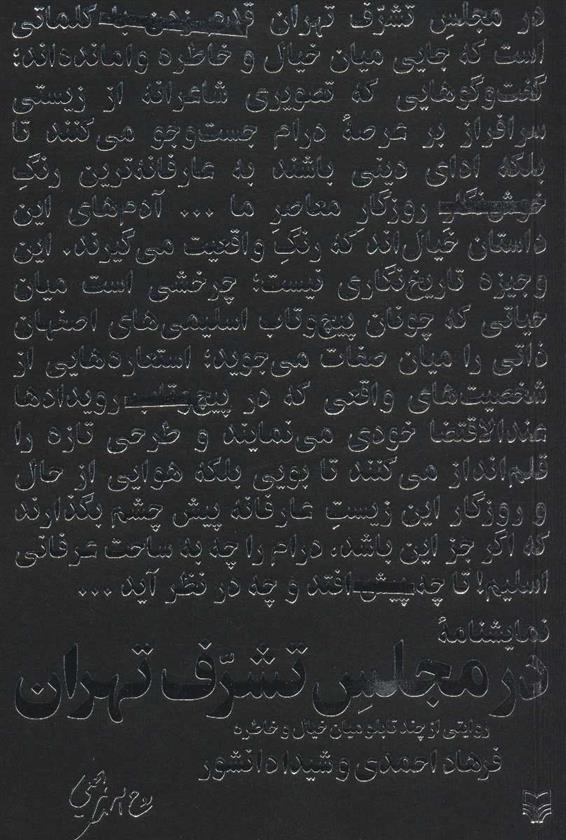 در مجلسِ تشرّف تهران کلماتی
است که جایی میان خیال و خاطره وامانده‌اند؛
گفت‌وگوهایی که تصویری شاعرانه از زیستی
سرافراز بر عرصهٔ درام جست‌وجو می‌کنند تا
بلکه ادای دینی باشند به عارفانه‌ترین رنگِ
روزگارِ معاصرِ ما ... آدم‌های این
داستان خیال‌اند که رنگِ واقعیت می‌گیرند. این
وجیزه تاریخ‌نگاری نیست؛ چرخشی است میان
حیاتی که چونان پیچ‌وتاب اسلیمی‌های اصفهان
ذاتی را میان صفات می‌جوید؛ استعاره‌هایی از
شخصیت‌های واقعی که در رویدادها
عندالاقتضا خودی می‌نمایند و طرحی تازه را
قلم‌انداز می‌کنند تا بویی بلکه هوایی از حال
و روزگار این زیستِ عارفانه پیش چشم بگذارند
که اگر جز این باشد، درام را چه به ساحت عرفانی
اسلیم! تا چه پیش افتد و چه در نظر آید ...
نمایشنامهٔ
در مجلسِ تشرّف تهران
روایتی از چند تابلو میان خیال و خاطره
فرهاد احمدی و شیدا دانشور